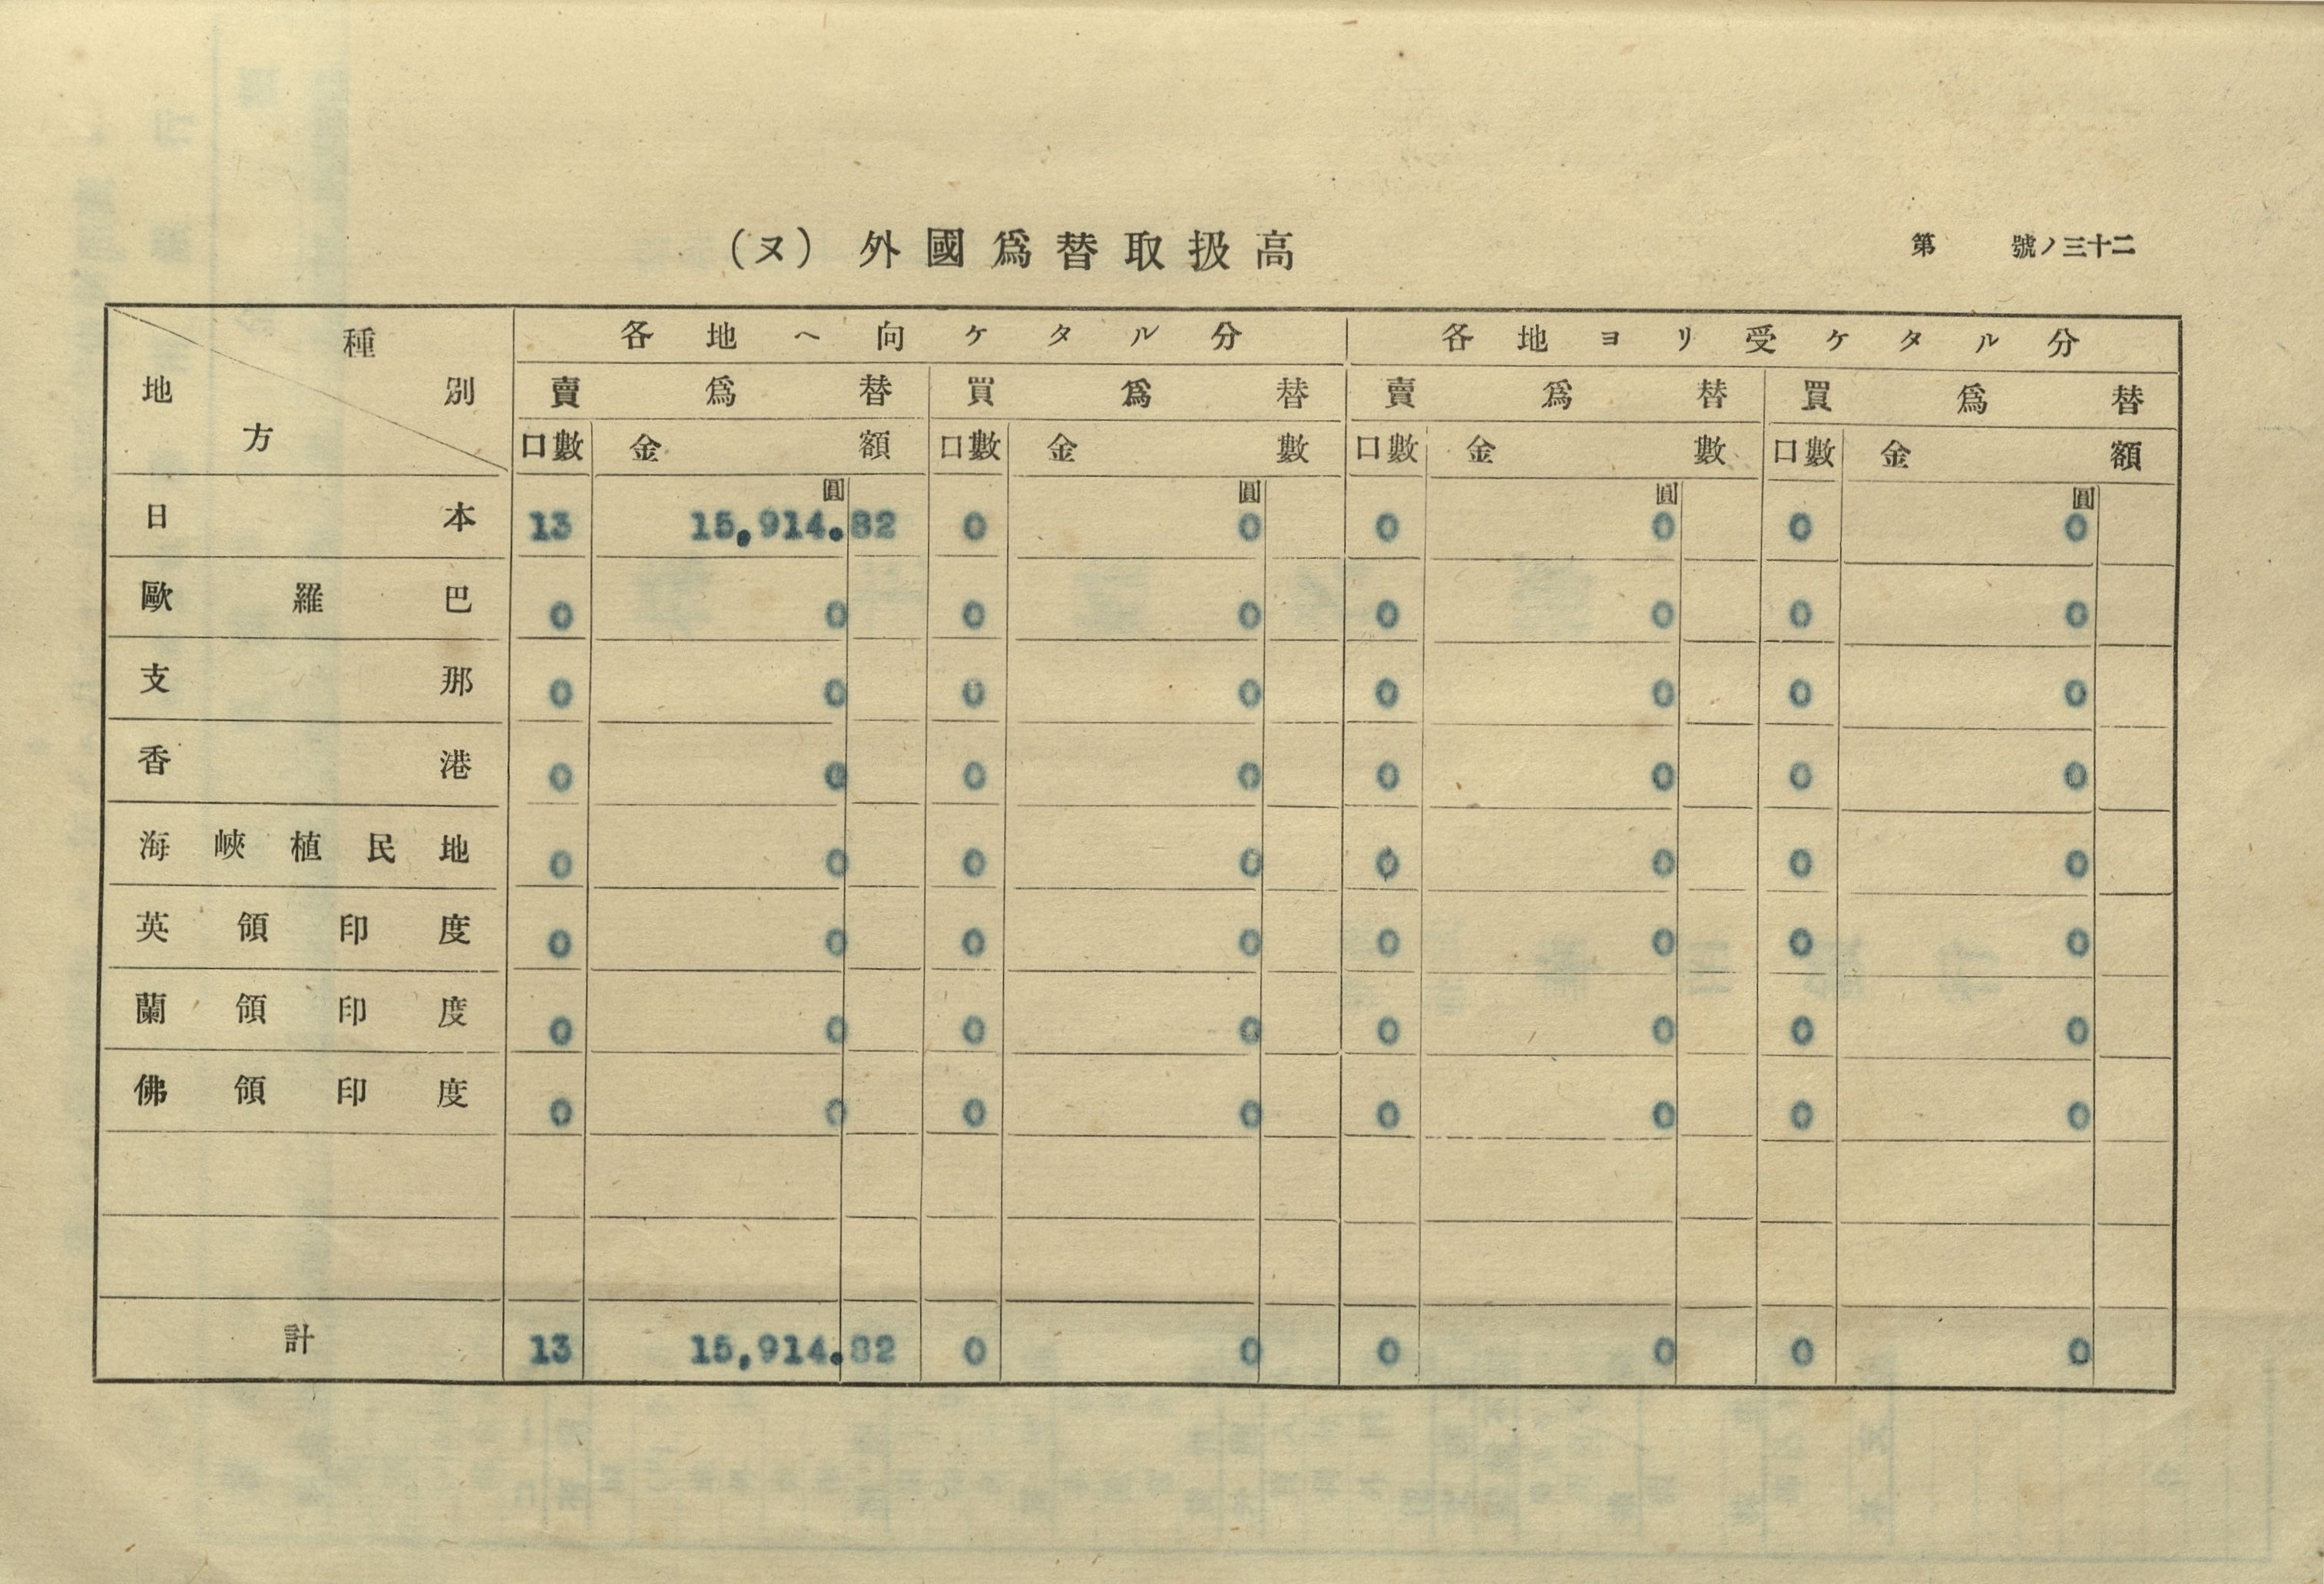 (ヌ) 外國爲替取扱高
第 號ノ三十二
種別 地方
各地ヘ向ケタル分 各地ヨリ受ケタル分
賣爲替 買爲替 賣爲替 買爲替
口數 金額 口數 金數 口數 金數 口數 金額
圓 圓 圓 圓
日本 13 15,914.82 0 0 0 0 0 0
歐羅巴 0 0 0 0 0 0 0 0
支那 0 0 0 0 0 0 0 0
香港 0 0 0 0 0 0 0 0
海峽植民地 0 0 0 0 0 0 0 0
英領印度 0 0 0 0 0 0 0 0
蘭領印度 0 0 0 0 0 0 0 0
佛領印度 0 0 0 0 0 0 0 0
計 13 15,914.82 0 0 0 0 0 0